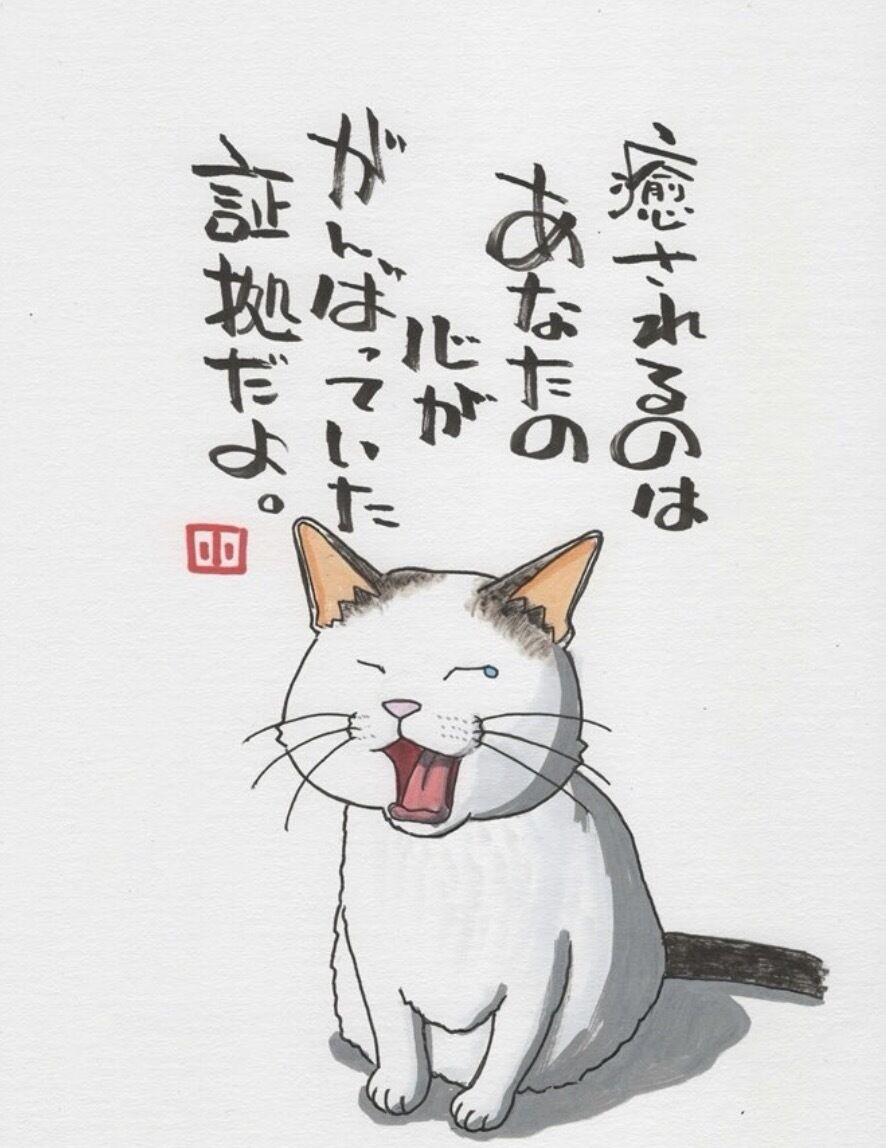 癒されるのは
あなたの
心が
がんばっていた
証拠だよ。